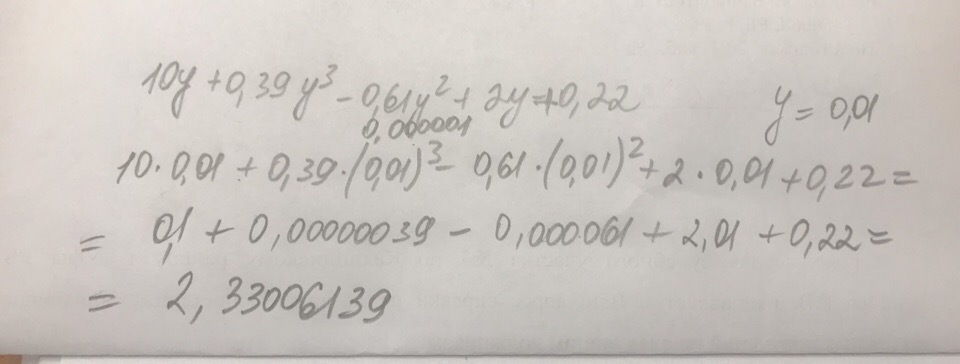 10y + 0,39 y³ - 0,61y² + 2y + 0,22
y = 0,01
0,000001
10·0,01 + 0,39·(0,01)³ - 0,61·(0,01)² + 2·0,01 + 0,22 =
= 0,1 + 0,00000039 - 0,000061 + 2,01 + 0,22 =
= 2,33006139